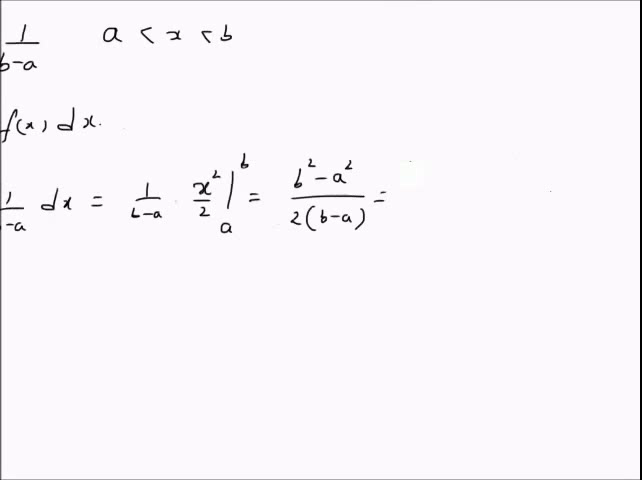 1/(b-a)   a < x < b
f(x) dx.
1/(b-a) dx = 1/(b-a) · x²/2 |_a^b = (b² - a²)/(2(b-a)) =